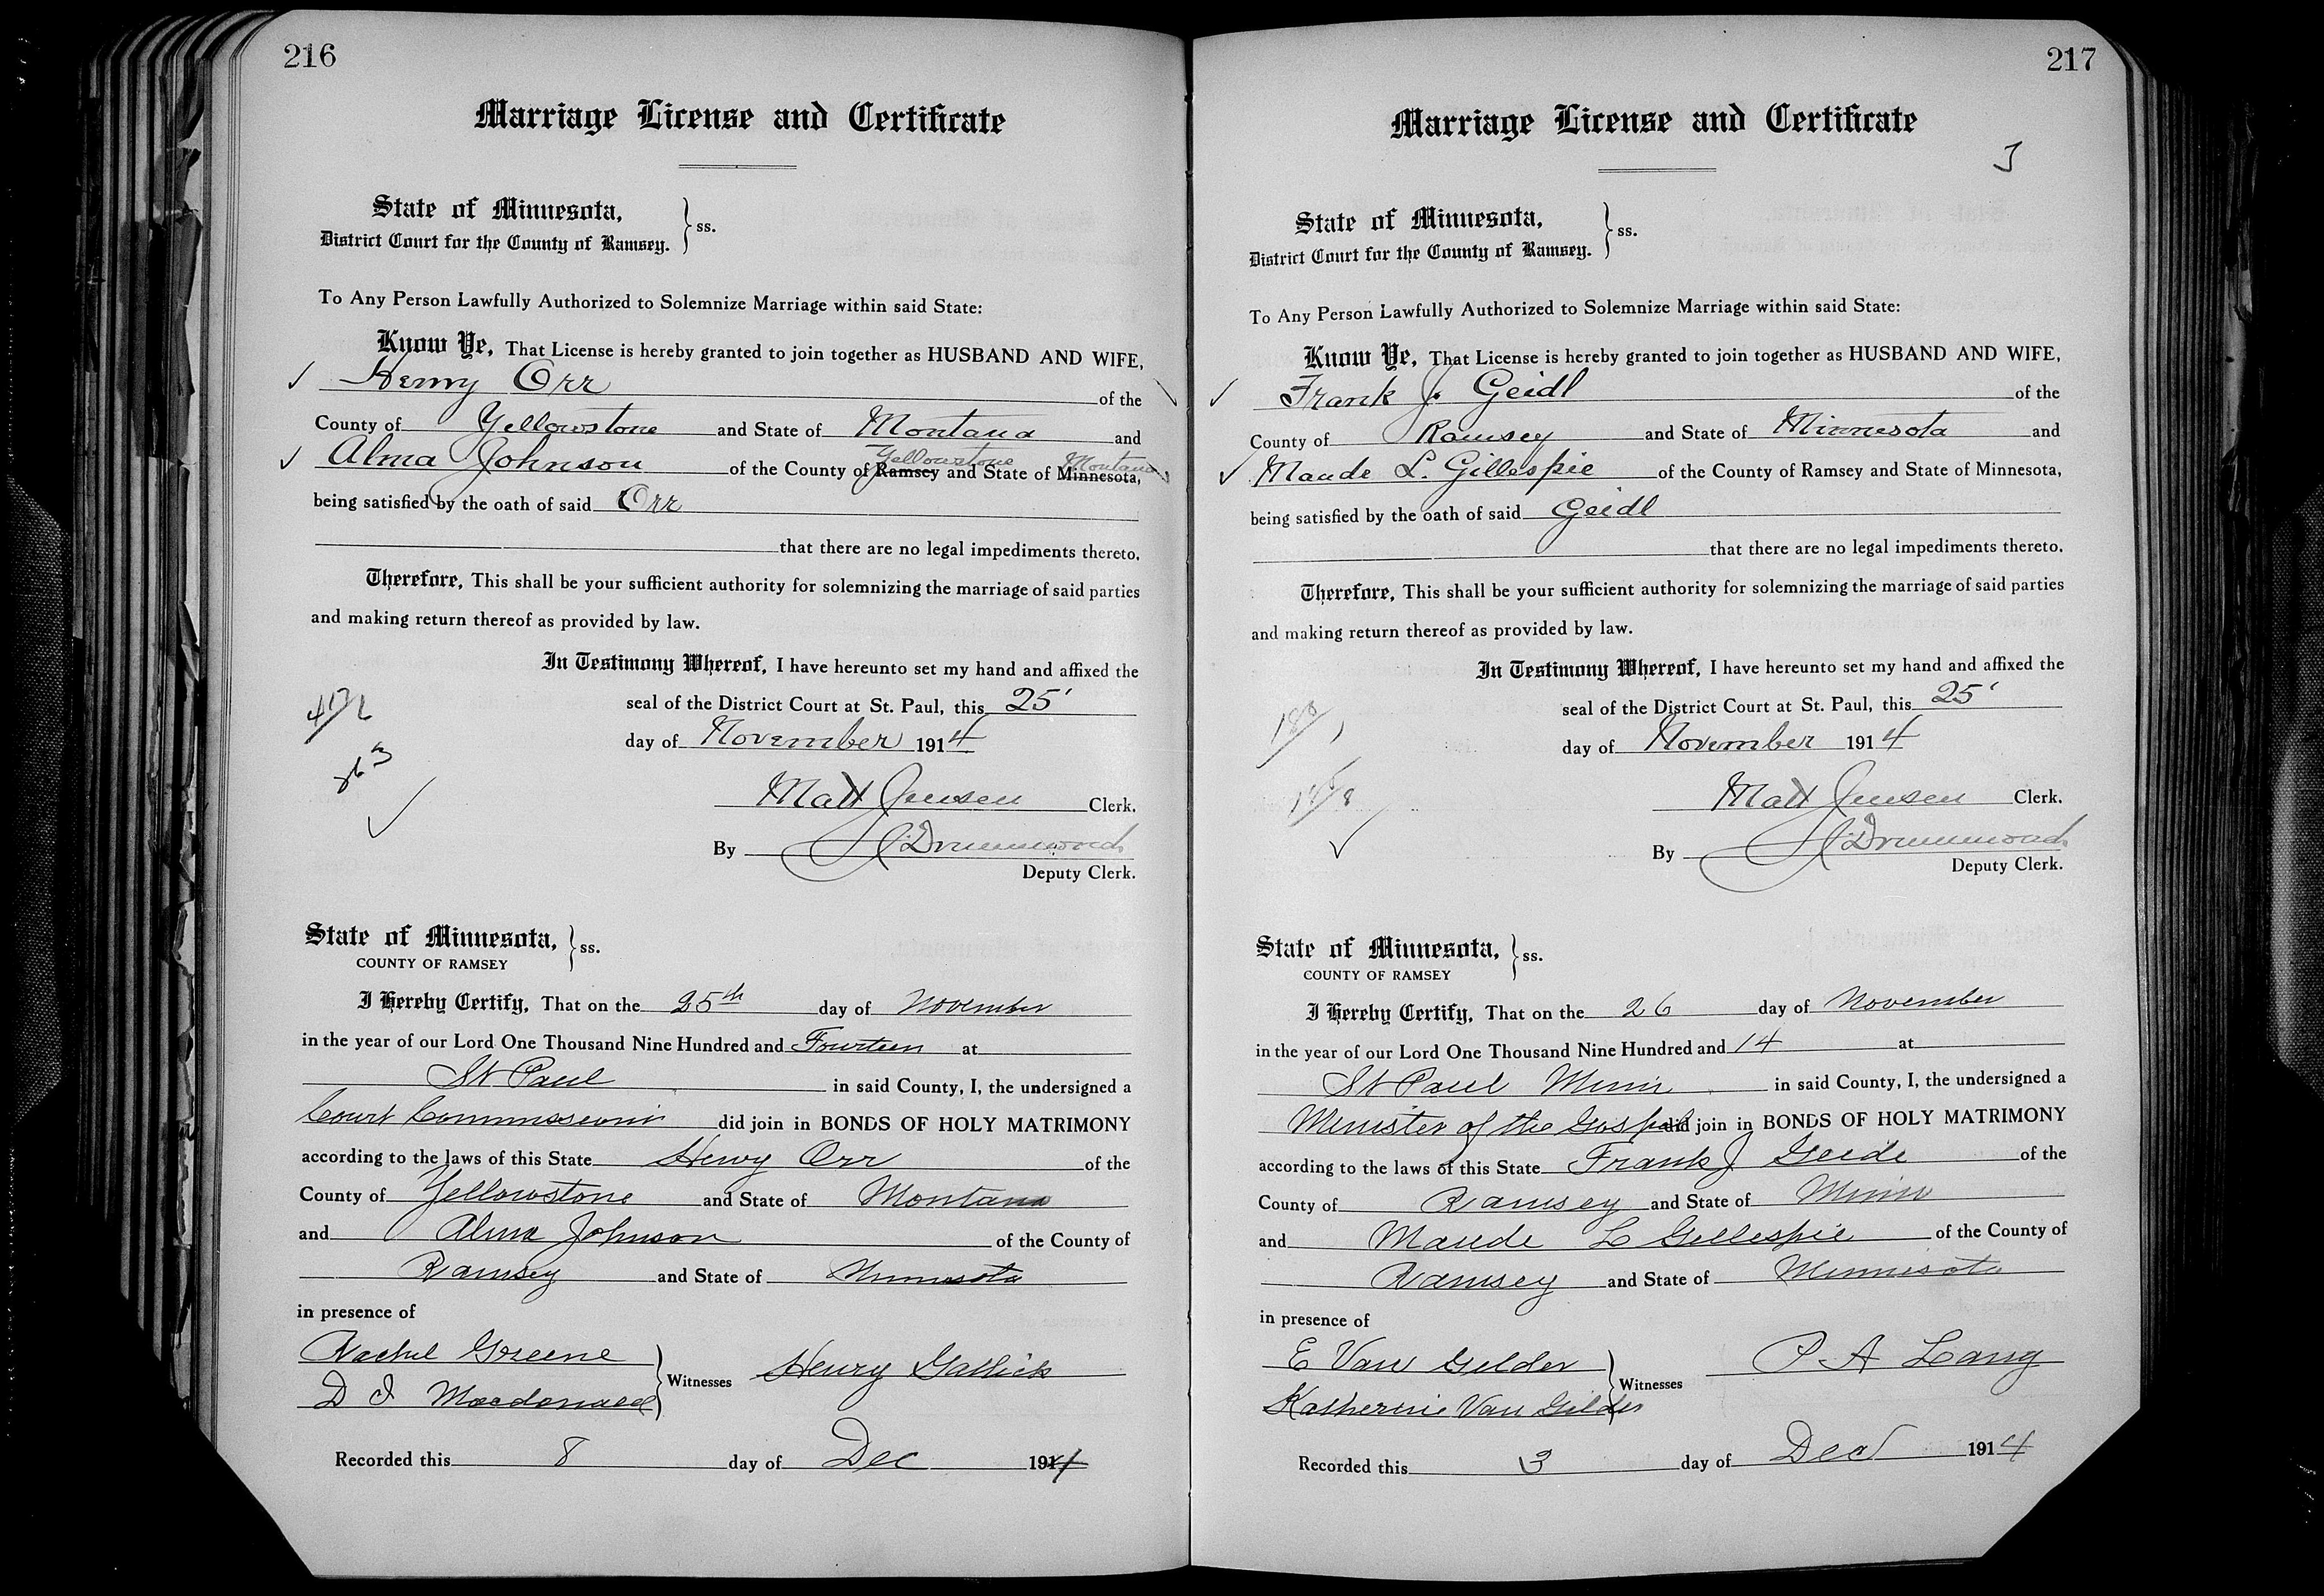 216
Marriage License and Certificate
State of Minnesota,
District Court for the County of Ramsey. } ss.
To Any Person Lawfully Authorized to Solemnize Marriage within said State:
Know Ye, That License is hereby granted to join together as HUSBAND AND WIFE,
Henry Orr of the
County of Yellowstone and State of Montana and
Yellowstone Montana
Alma Johnson of the County of Ramsey and State of Minnesota,
being satisfied by the oath of said Orr
that there are no legal impediments thereto.
Therefore, This shall be your sufficient authority for solemnizing the marriage of said parties
and making return thereof as provided by law.
In Testimony Whereof, I have hereunto set my hand and affixed the
seal of the District Court at St. Paul, this 25'
day of November 1914
Matt Jensen Clerk.
By Drummond
Deputy Clerk.
State of Minnesota,
COUNTY OF RAMSEY } ss.
I Hereby Certify, That on the 25th day of November
in the year of our Lord One Thousand Nine Hundred and Fourteen at
St Paul in said County, I, the undersigned a
Court Commissioner did join in BONDS OF HOLY MATRIMONY
according to the laws of this State Henry Orr of the
County of Yellowstone and State of Montana
and Alma Johnson of the County of
Ramsey and State of Minnesota
in presence of
Rachel Greene
D I Macdonald } Witnesses Henry Gallick
Recorded this 8 day of Dec 1914
217
Marriage License and Certificate
State of Minnesota,
District Court for the County of Ramsey. } ss.
To Any Person Lawfully Authorized to Solemnize Marriage within said State:
Know Ye, That License is hereby granted to join together as HUSBAND AND WIFE,
Frank J. Geidl of the
County of Ramsey and State of Minnesota and
Maude L. Gillespie of the County of Ramsey and State of Minnesota,
being satisfied by the oath of said Geidl
that there are no legal impediments thereto.
Therefore, This shall be your sufficient authority for solemnizing the marriage of said parties
and making return thereof as provided by law.
In Testimony Whereof, I have hereunto set my hand and affixed the
seal of the District Court at St. Paul, this 25'
day of November 1914
Matt Jensen Clerk.
By Drummond
Deputy Clerk.
State of Minnesota,
COUNTY OF RAMSEY } ss.
I Hereby Certify, That on the 26 day of November
in the year of our Lord One Thousand Nine Hundred and 14 at
St Paul Minn in said County, I, the undersigned a
Minister of the Gospel did join in BONDS OF HOLY MATRIMONY
according to the laws of this State Frank J Geide of the
County of Ramsey and State of Minn
and Maude L Gillespie of the County of
Ramsey and State of Minnesota
in presence of
E Van Gelder
Katherine Van Gilder } Witnesses P A Lang
Recorded this 3 day of Dec 1914